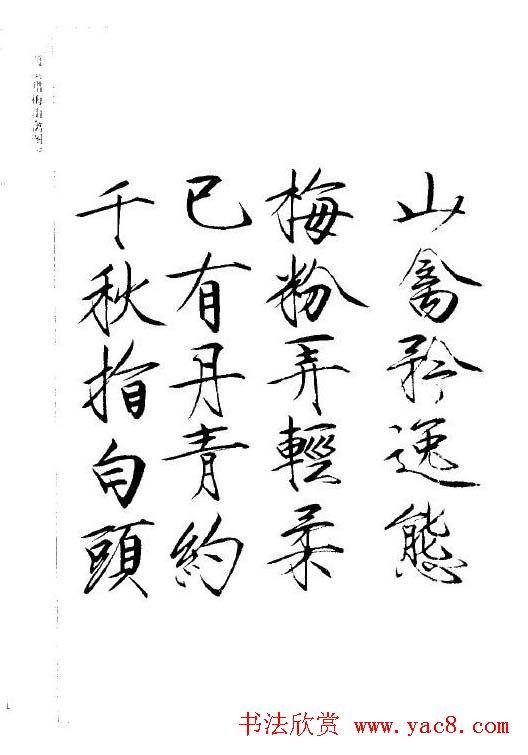 山禽矜逸態
梅粉弄輕柔
已有丹青約
千秋指白頭
书法欣赏 www.yac8.com